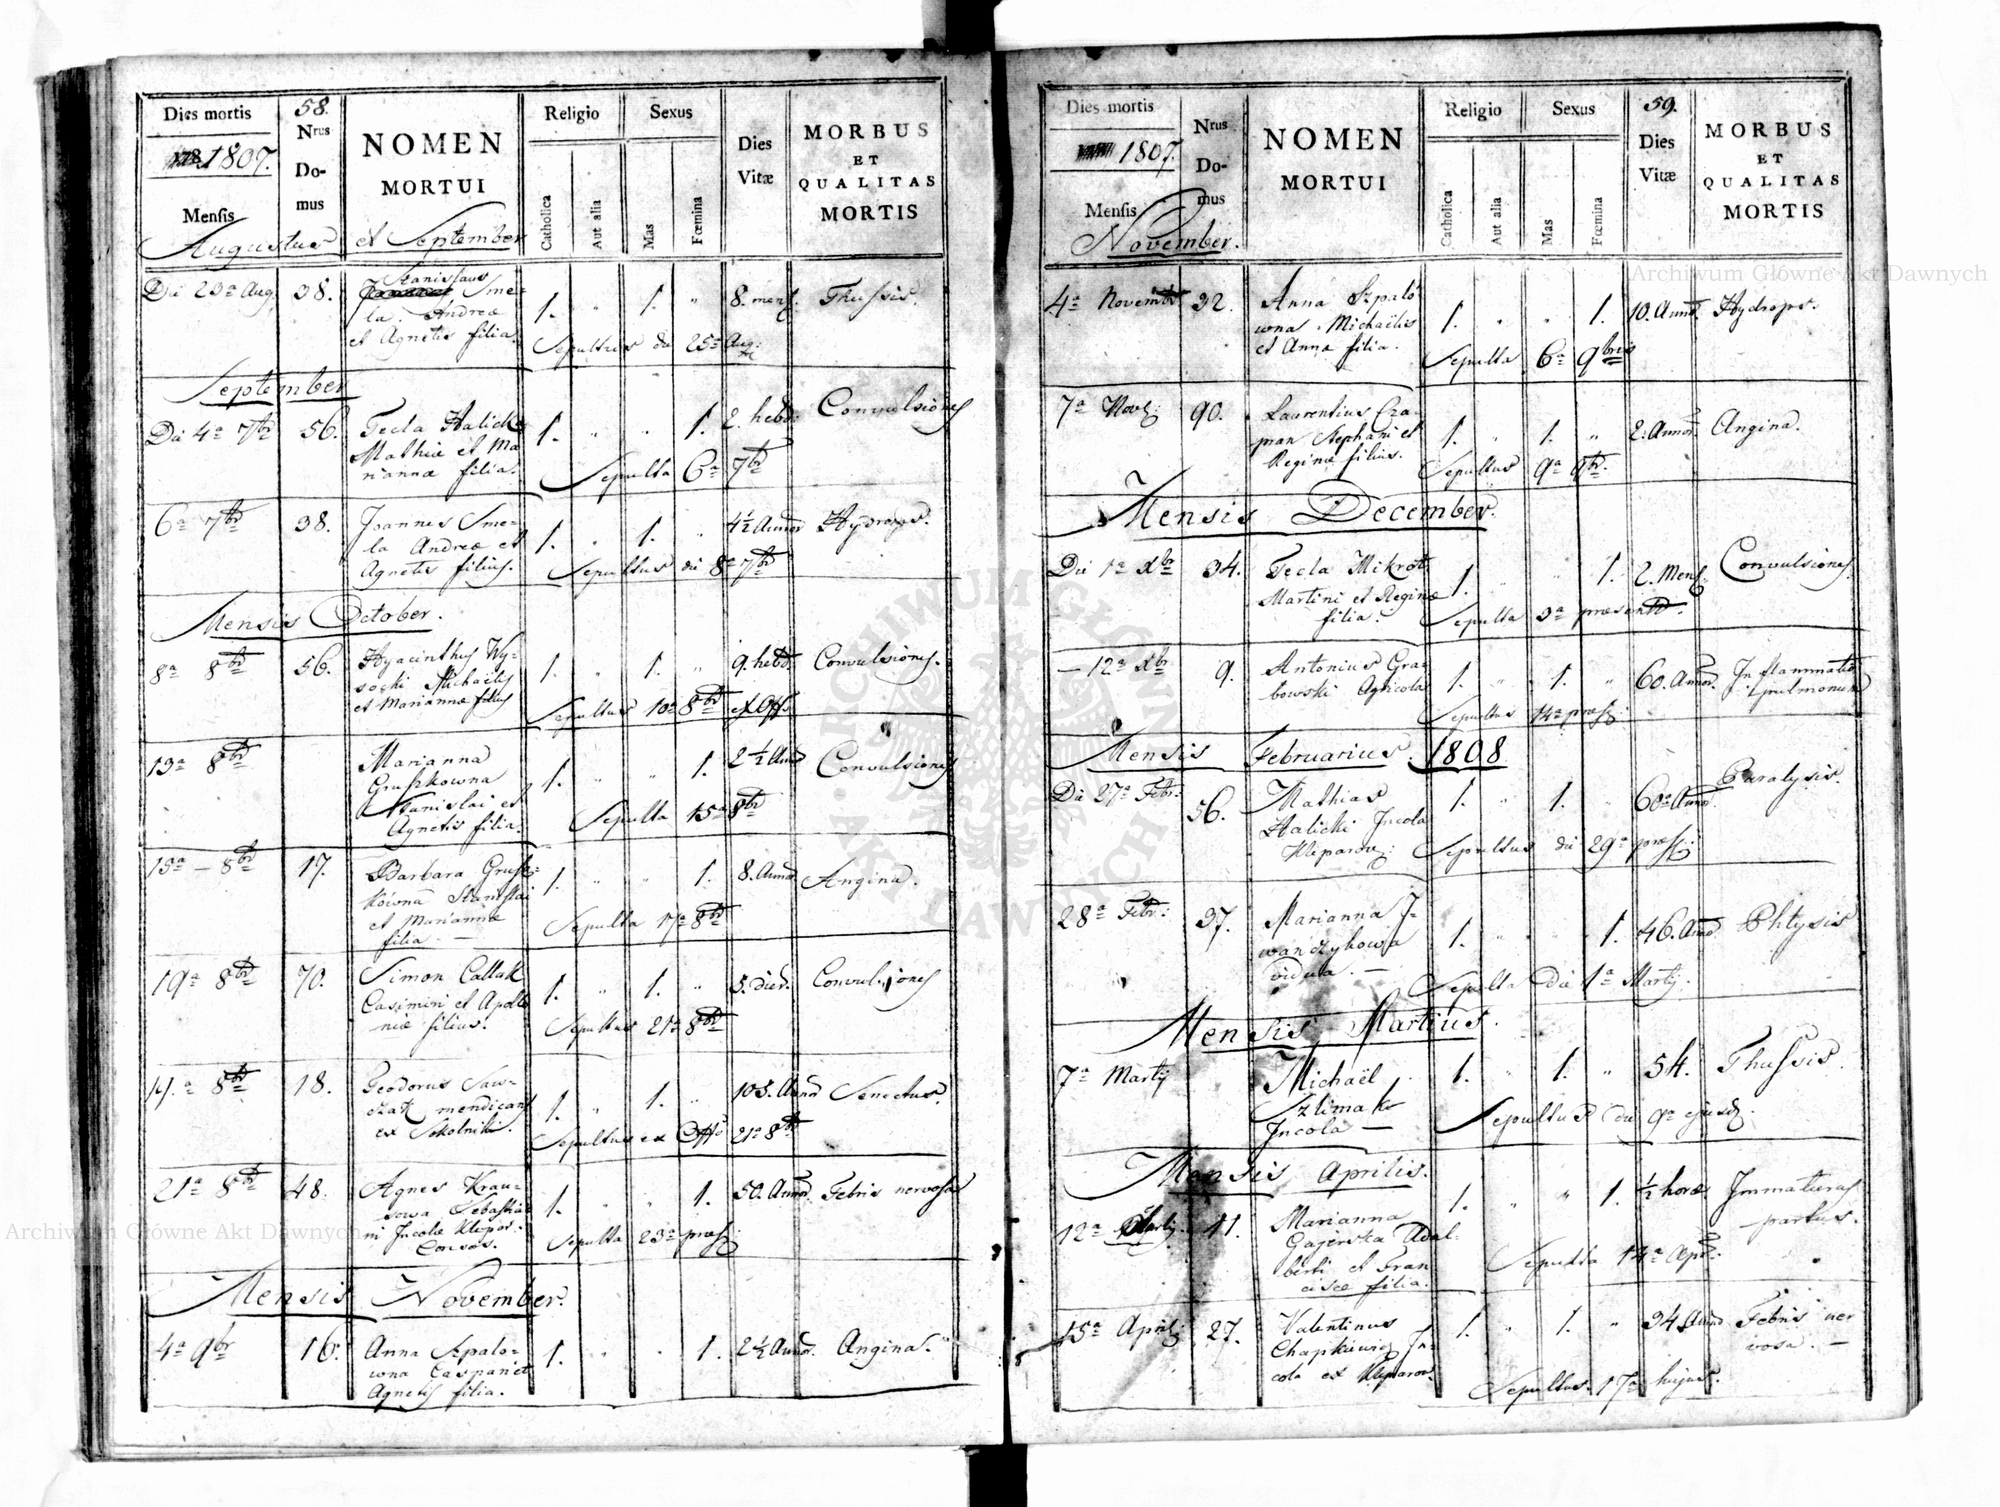 Dies mortis
1807.
Mensis
Augustus et September
58.
Nrus
Do-
mus
NOMEN
MORTUI
Religio
Catholica
Aut alia
Sexus
Mas
Fœmina
Dies
Vitæ
MORBUS
ET
QUALITAS
MORTIS
Die 23a Aug. 38. Stanislaus Sme- 1. " 1. " 8. mens. Thussis.
la. Andreæ
et Agnetis filia. Sepultus die 25a Aug:
September
Die 4a 7br 56. Tecla Halick 1. " " 1. 2. hebd. Convulsiones
Mathiæ et Ma
riannæ filia. Sepulta 6a 7br
6a 7br 38. Joannes Sme- 1. " 1. " 4½ Annor Hydrops.
la Andreæ et
Agnetis filius. Sepultus die 8a 7br
Mensis October.
8a 8br 56. Hyacinthus Wy- 1. " 1. " 9. hebd. Convulsiones.
socki Michaëlis
et Mariannæ filius Sepultus 10a 8br ex Offo
13a 8br Marianna 1. " " 1. 2½ Annor Convulsiones
Gruszkowna
Stanislai et
Agnetis filia. Sepulta 15a 8br
15a — 8br 17. Barbara Grusz- 1. " " 1. 8. Annor Angina.
kówna Stanislai
et Mariannæ
filia. — Sepulta 17a 8br
19a 8br 70. Simon Callak 1. " 1. " 5. dier. Convulsiones
Casimiri et Apollo
niæ filius. Sepultus 21a 8br
18. 1. " 1. " 103. Annor Senectus.
mendicans
ex Sokolniki. Sepultus ex Offo 21a 8br
21a 8br 48. Agnes Krau- 1. " " 1. 50. Annor. Febris nervosa
sowa Sebastia
ni Incolæ Klepar:
Consors. Sepulta 23a præs:
Mensis November.
4a 9br 16. Anna Szpalo- 1. " " 1. 2½ Annor. Angina.
wna Caspari et
Agnetis filia.
Dies mortis
1807.
Mensis
November.
Nrus
Do-
mus
NOMEN
MORTUI
Religio
Catholica
Aut alia
Sexus
Mas
Fœmina
59.
Dies
Vitæ
MORBUS
ET
QUALITAS
MORTIS
4a Novembr 32. Anna Szpaló 1. " " 1. 10. Annor. Hydrops.
wna. Michaëlis
et Annæ filia. Sepulta 6a 9bris
7a Nov: 90. Laurentius Cza- 1. " 1. " 2. Annor. Angina.
pran Stephani et
Reginæ filius. Sepultus 9a 9br.
Mensis December.
Die 1a Xbr 34. Tecla Mikrót 1. " " 1. 2. Mens: Convulsiones.
Martini et Reginæ
filia. Sepulta 3a præsentis.
— 12a Xbr 9. Antonius Gra- 1. " 1. " 60. Annor. Inflammatio
bowski Agricola pulmonum
Sepultus 14a præs:
Mensis Februarius. 1808
Die 27a Febr: 56. Mathias 1. " 1. " 60a Annor Paralysis.
Halicki Incola
Kleparov: Sepultus die 29a præs:
28a Febr: 37. Marianna J- 1. " " 1. 46. Annor Phtysis
wanczykowa
vidua. — Sepulta die 1a Martij.
Mensis Martius.
7a Martij Michaël 1. " 1. " 54. Thussis.
Szlimak
Incola — Sepultus die 9a ejusd.
Mensis Aprilis.
12a 41. Marianna 1. " " 1. ½ horæ Immaturus
Gajerska Adal- partus.
berti et Fran
ciscæ filia. Sepulta 14a Apr:
15a April: 27. Valentinus 1. " 1. " 34 Annor Febris ner
Chapkiewicz In- vosa. —
cola ex Kleparov.
Sepultus 17a hujus.
Archiwum Główne Akt Dawnych
Archiwum Główne Akt Dawnych
ARCHIWUM GŁÓWNE
AKT DAWNYCH